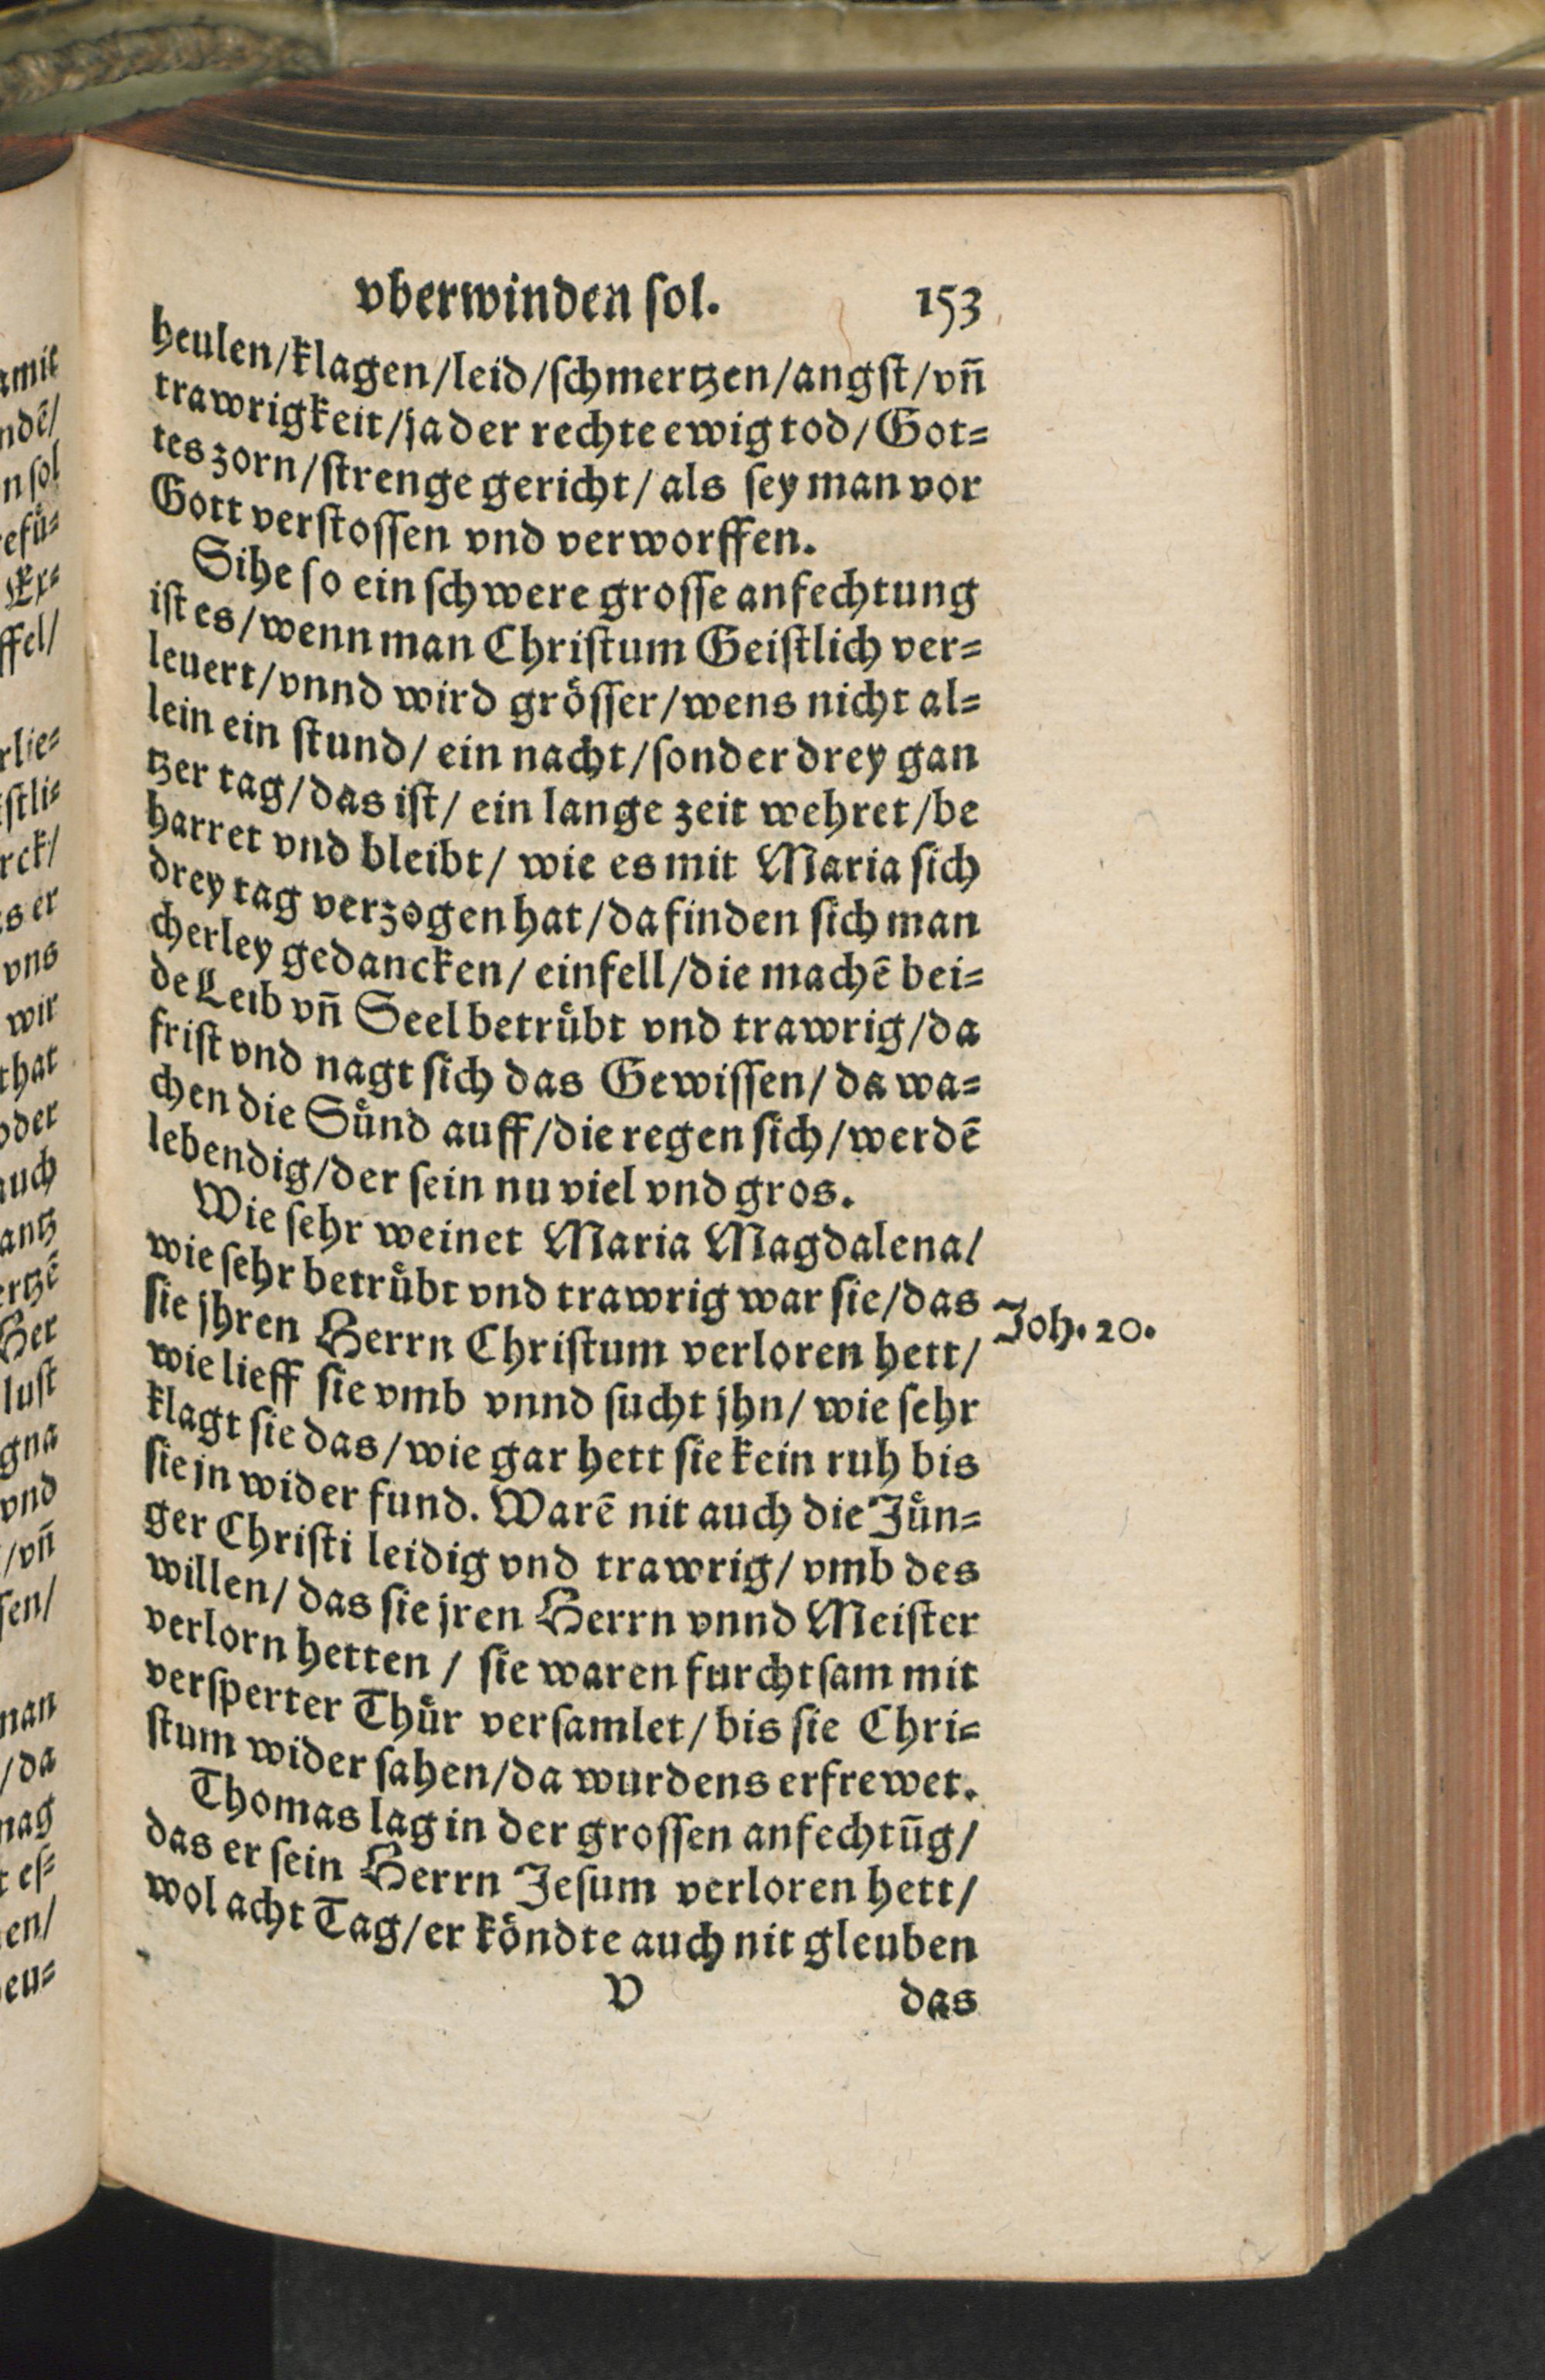 vberwinden ſol. 153
heulen/klagen/leid/ſchmertzen/angſt/vn̄
trawrigkeit/ja der rechte ewig tod/Got=
tes zorn/ſtrenge gericht/als ſey man vor
Gott verſtoſſen vnd verworffen.
Sihe ſo ein ſchwere groſſe anfechtung
iſt es/wenn man Chriſtum Geiſtlich ver=
leuert/vnnd wird groͤſſer/wens nicht al=
lein ein ſtund/ein nacht/ſonder drey gan
tzer tag/das iſt/ein lange zeit wehret/be
harret vnd bleibt/wie es mit Maria ſich
drey tag verzogen hat/da finden ſich man
cherley gedancken/einfell/die machē bei=
de Leib vn̄ Seel betruͤbt vnd trawrig/da
friſt vnd nagt ſich das Gewiſſen/da wa=
chen die Suͤnd auff/die regen ſich/werdē
lebendig/der ſein nu viel vnd gros.
Wie ſehr weinet Maria Magdalena/
wie ſehr betruͤbt vnd trawrig war ſie/das
Joh. 20.
ſie jhren Herrn Chriſtum verloren hett/
wie lieff ſie vmb vnnd ſucht jhn/wie ſehr
klagt ſie das/wie gar hett ſie kein ruh bis
ſie jn wider fund. Warē nit auch die Juͤn=
ger Chriſti leidig vnd trawrig/vmb des
willen/das ſie jren Herrn vnnd Meiſter
verlorn hetten/ſie waren furchtſam mit
verſperter Thuͤr verſamlet/bis ſie Chri=
ſtum wider ſahen/da wurdens erfrewet.
Thomas lag in der groſſen anfechtūg/
das er ſein Herrn Jeſum verloren hett/
wol acht Tag/er koͤndte auch nit gleuben
V das